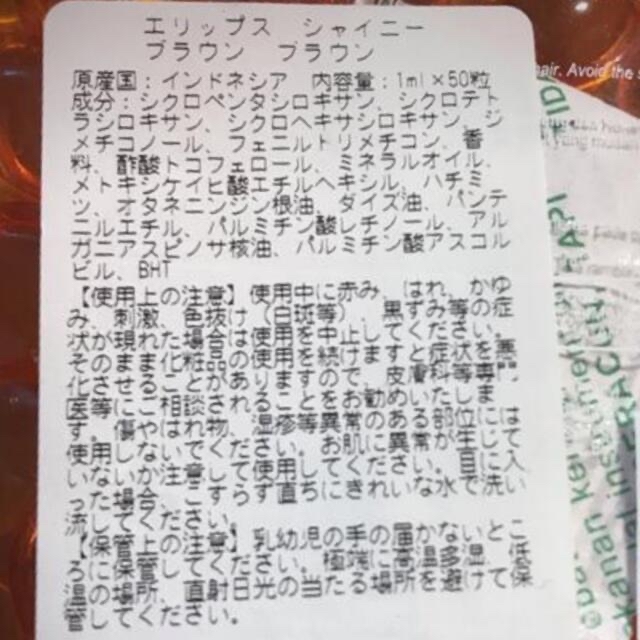 エリップス シャイニー
ブラウン ブラウン
原産国：インドネシア 内容量：1ml×50粒
成分：シクロペンタシロキサン、シクロテト
ラシロキサン、シクロヘキサシロキサン、ジ
メチコノール、フェニルトリメチコン、香
料、酢酸トコフェロール、ミネラルオイル、
メトキシケイヒ酸エチルヘキシル、ハチミ
ツ、オタネニンジン根油、ダイズ油、パンテ
ニルエチル、パルミチン酸レチノール、アル
ガニアスピノサ核油、パルミチン酸アスコル
ビル、BHT
【使用上の注意】使用中に赤み、はれ、かゆ
み、刺激、色抜け（白斑等）、黒ずみ等の症
状が現れた場合は使用を中止してください。
そのまま化粧品の使用を続けますと症状を悪
化させることがありますので、皮膚科等専門
医等にご相談されることをお勧めいたしま
す。傷やはれ物、湿疹等異常のある部位には
使用しないでください。お肌に異常が生じて
いないか注意して使用してください。目に入
った場合、こすらず直ちにきれいな水で洗い
流してください。
【保管上の注意】乳幼児の手の届かないとこ
ろに保管してください。極端に高温多湿、低
温の場所、直射日光の当たる場所を避けて保
管してください。
hair. Avoid the